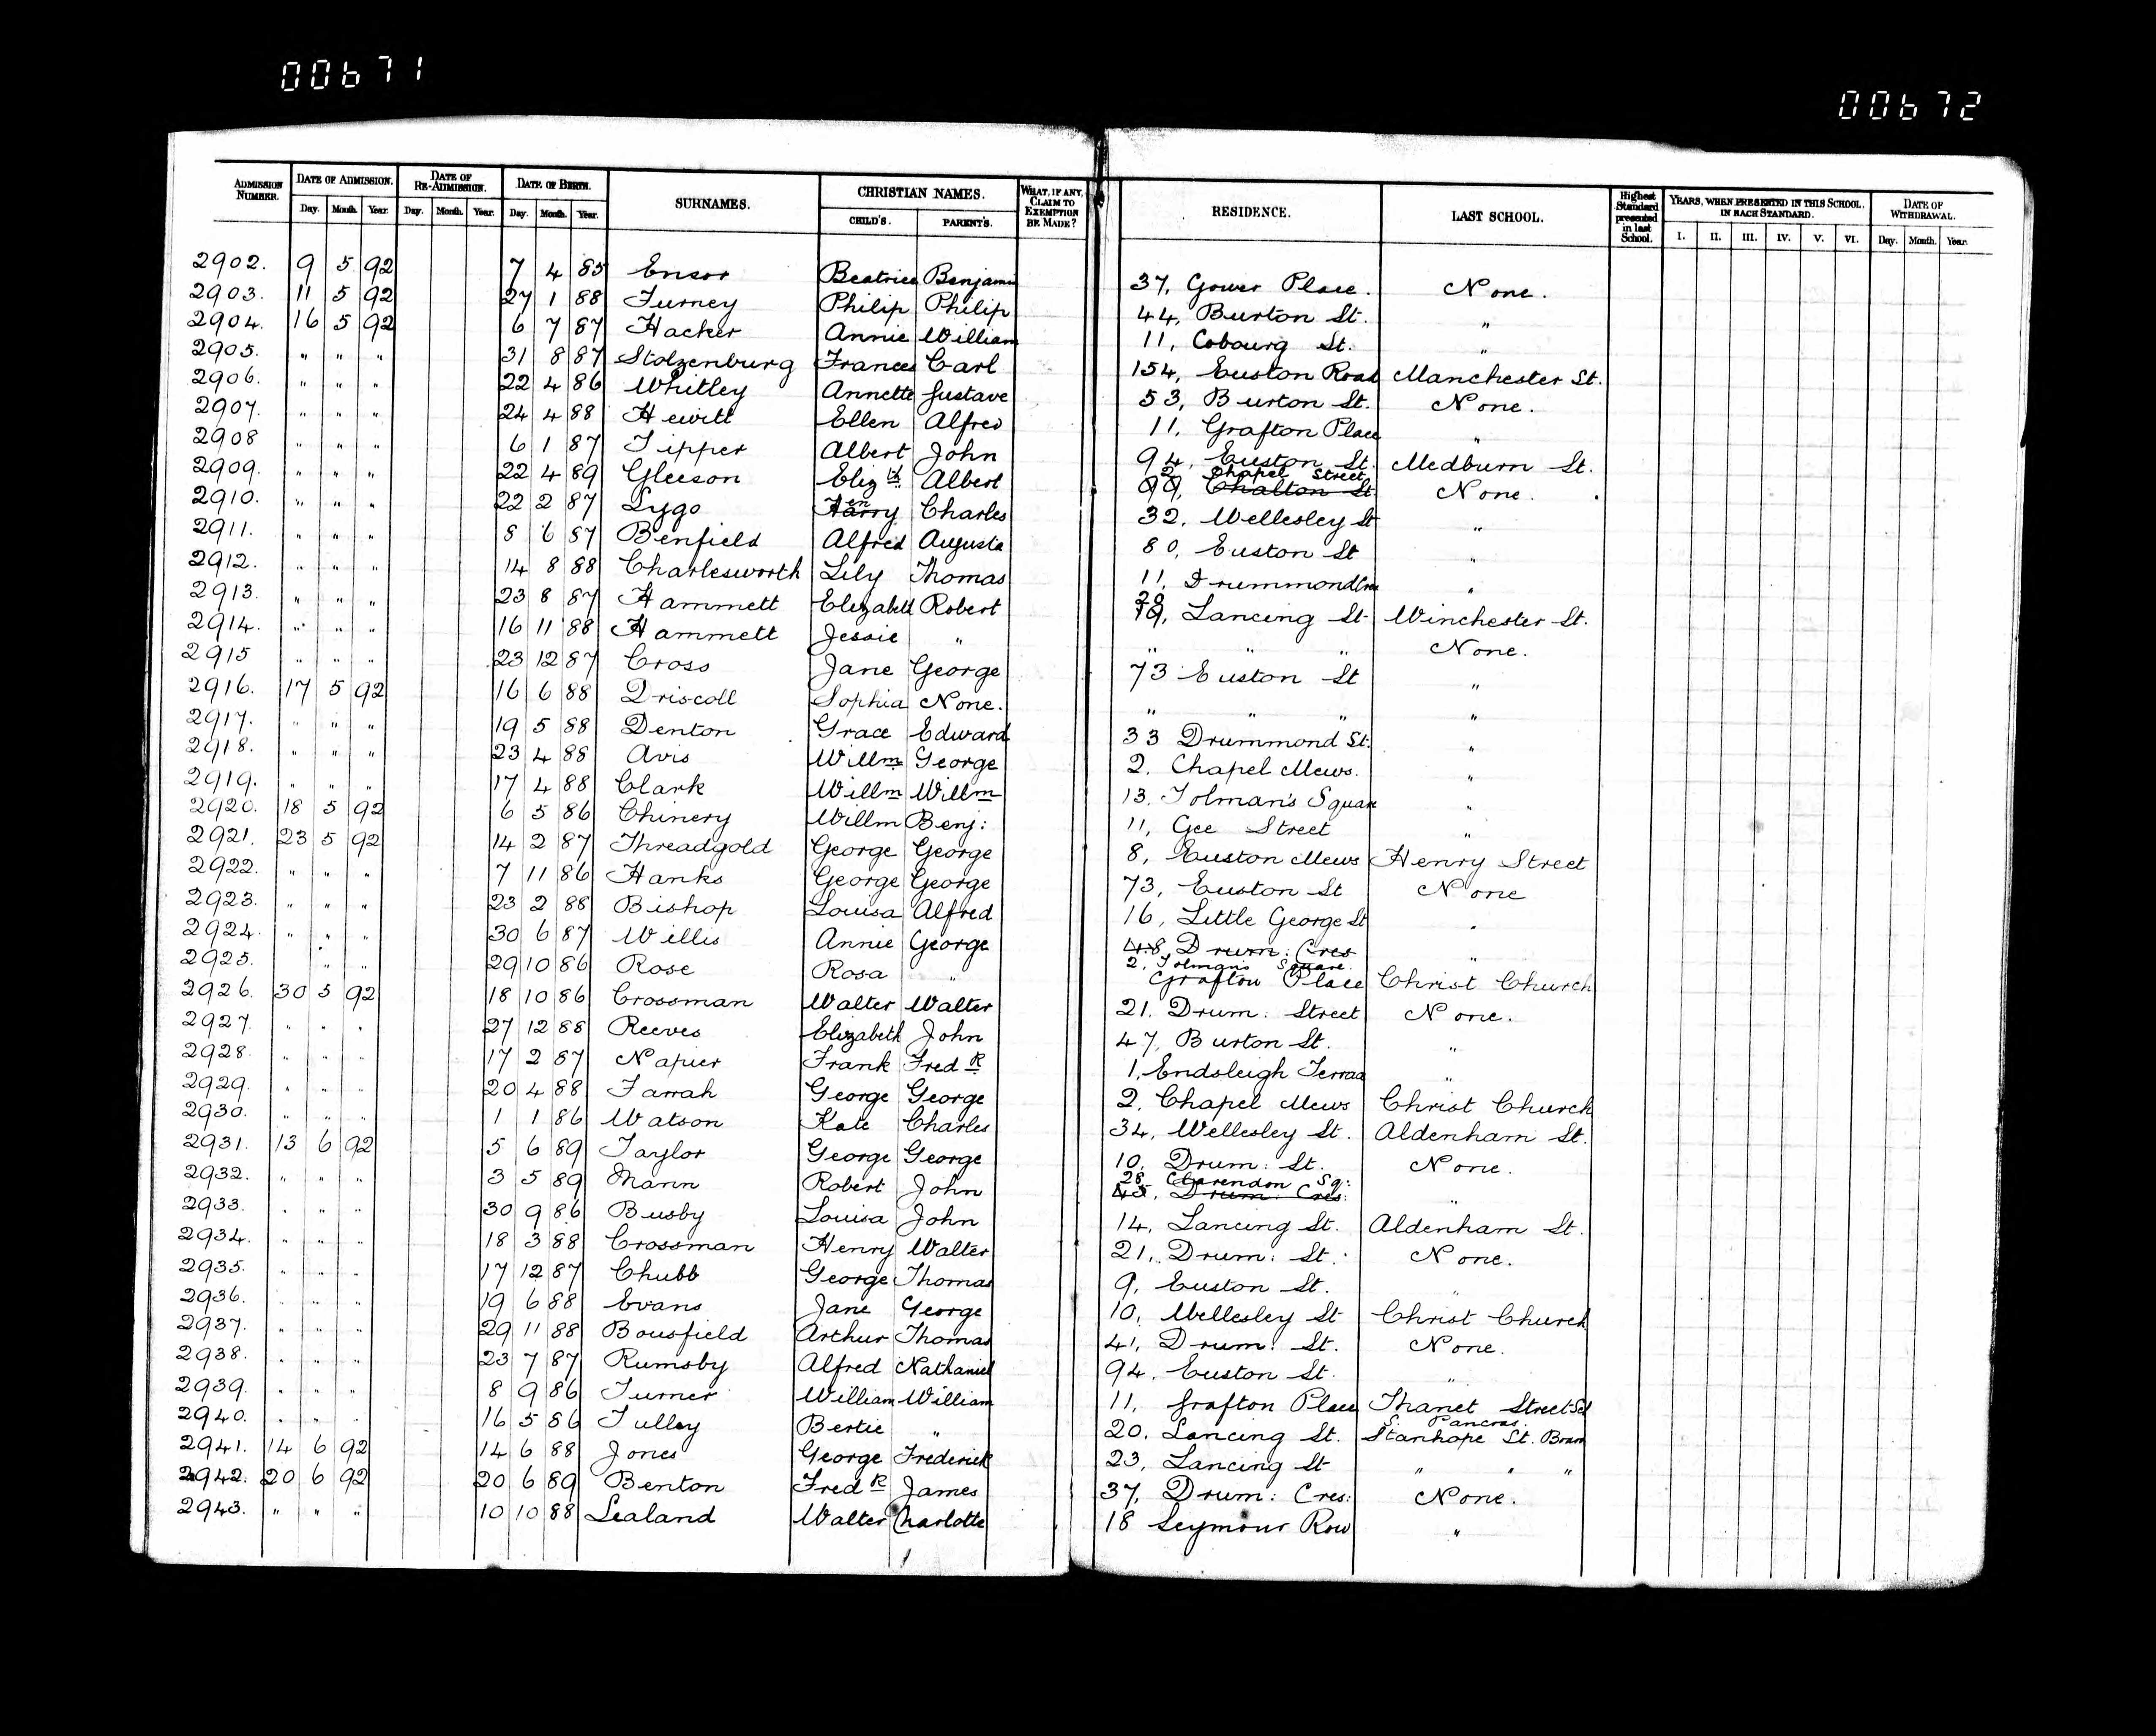 00671
00672
ADMISSION NUMBER. DATE OF ADMISSION. DATE OF RE-ADMISSION. DATE OF BIRTH. SURNAMES. CHRISTIAN NAMES. WHAT, IF ANY, CLAIM TO EXEMPTION BE MADE? RESIDENCE. LAST SCHOOL. Highest Standard presented in last School. YEARS, WHEN PRESENTED IN THIS SCHOOL, IN EACH STANDARD. DATE OF WITHDRAWAL.
Day. Month. Year. Day. Month. Year. Day. Month. Year. CHILD'S. PARENT'S. I. II. III. IV. V. VI. Day. Month. Year.
2902. 9 5 92 7 4 85 Ensor Beatrice Benjamin 37, Gower Place. None.
2903. 11 5 92 27 1 88 Turney Philip Philip 44, Burton St. "
2904. 16 5 92 6 7 87 Hacker Annie William 11, Cobourg St. "
2905. " " " 31 8 87 Stolzenburg Frances Carl 154, Euston Road Manchester St.
2906. " " " 22 4 86 Whitley Annette Gustave 53, Burton St. None.
2907. " " " 24 4 88 Hewitt Ellen Alfred 11, Grafton Place "
2908 " " " 6 1 87 Tipper Albert John 94, Euston St. Medburn St.
2909. " " " 22 4 89 Gleeson Elizth Albert 2 Chapel Street 99, Chalton St None.
2910. " " " 22 2 87 Lygo Harry Charles 32, Wellesley St "
2911. " " " 8 6 87 Benfield Alfred Augusta 80, Euston St "
2912. " " " 14 8 88 Charlesworth Lily Thomas 11, Drummond Cres "
2913. " " " 23 8 87 Hammett Elizabeth Robert 20 19, Lancing St. Winchester St.
2914. " " " 16 11 88 Hammett Jessie " " " " None.
2915 " " " 23 12 87 Cross Jane George 73 Euston St "
2916. 17 5 92 16 6 88 Driscoll Sophia None. " " " "
2917. " " " 19 5 88 Denton Grace Edward 33 Drummond St. "
2918. " " " 23 4 88 Avis Willm George 2. Chapel Mews. "
2919. " " " 17 4 88 Clark Willm Willm 13, Tolman's Square "
2920. 18 5 92 6 5 86 Chinery Willm Benj: 11, Gee Street "
2921. 23 5 92 14 2 87 Threadgold George George 8, Euston Mews Henry Street
2922. " " " 7 11 86 Hanks George George 73, Euston St None
2923. " " " 23 2 88 Bishop Louisa Alfred 16, Little George St "
2924. " " " 30 6 87 Willis Annie George 48, Drum: Cres "
2925. " " " 29 10 86 Rose Rosa " 2, Tolmans Square. Grafton Place Christ Church
2926. 30 5 92 18 10 86 Crossman Walter Walter 21. Drum: Street None.
2927. " " " 27 12 88 Reeves Elizabeth John 47, Burton St. "
2928. " " " 17 2 87 Napier Frank FredR 1, Endsleigh Terrace "
2929. " " " 20 4 88 Farrah George George 2, Chapel Mews Christ Church
2930. " " " 1 1 86 Watson Kate Charles 34, Wellesley St. Aldenham St.
2931. 13 6 92 5 6 89 Taylor George George 10, Drum: St. None.
2932. " " " 3 5 89 Mann Robert John 28 Clarendon Sq: 43, Drum: Cres: "
2933. " " " 30 9 86 Busby Louisa John 14, Lancing St. Aldenham St.
2934. " " " 18 3 88 Crossman Henry Walter 21, Drum: St.: None.
2935. " " " 17 12 87 Chubb George Thomas 9, Euston St. "
2936. " " " 19 6 88 Evans Jane George 10, Wellesley St Christ Church
2937. " " " 29 11 88 Bousfield Arthur Thomas 41, Drum: St. None.
2938. " " " 23 7 87 Rumsby Alfred Nathaniel 94, Euston St. "
2939. " " " 8 9 86 Turner William William 11, Grafton Place Thanet Street Scl
2940. " " " 16 5 86 Tulley Bertie " 20, Lancing St. S. Pancras. Stanhope St. Board
2941. 14 6 92 14 6 88 Jones George Frederick 23, Lancing St " " "
2942. 20 6 92 20 6 89 Benton FredR James 37, Drum: Cres: None.
2943. " " " 10 10 88 Lealand Walter Charlotte 18 Seymour Row "